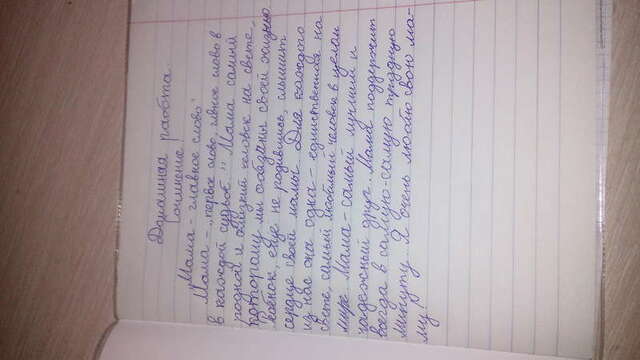 Домашняя работа.
Сочинение
"Мама - главное слово"
Мама - „первое слово, главное слово в
в каждой судьбе." Мама самый
родной и близкий человек на свете,
которому мы обязаны своей жизнью
ребёнок, еще не родившись, слышит
сердце своей мамы. Для каждого
из нас она одна - единственная на
свете, самый любимый человек в целом
мире. Мама - самый лучший и
надежный друг. Мама поддержит
всегда в самую-самую трудную
минуту. Я очень люблю свою ма-
му!